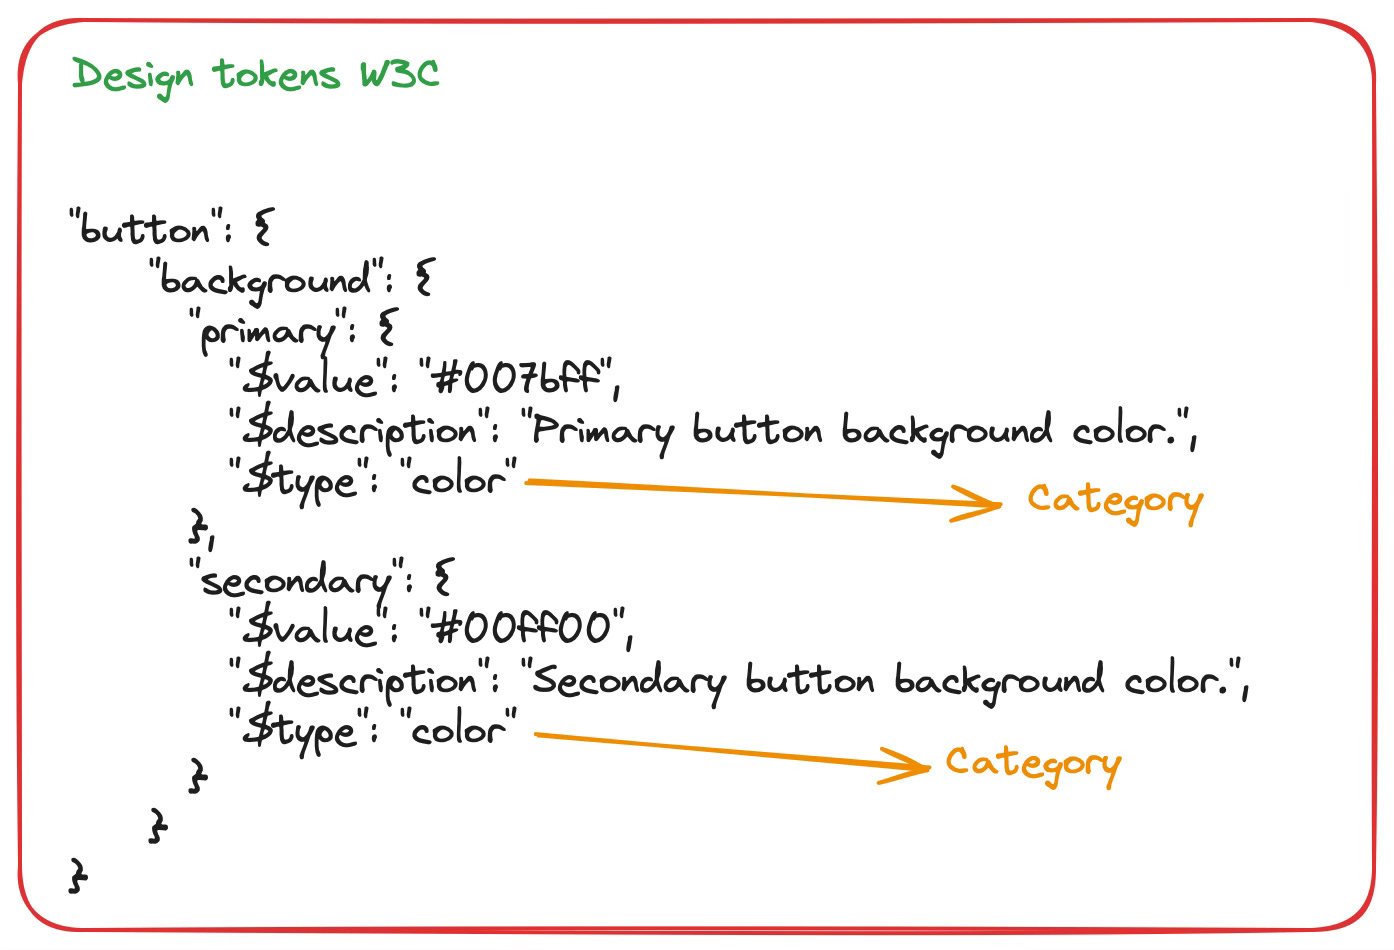 Design tokens W3C
"button": {
"background": {
"primary": {
"$value": "#007bff",
"$description": "Primary button background color.",
"$type": "color"
Category
},
"secondary": {
"$value": "#00ff00",
"$description": "Secondary button background color.",
"$type": "color"
Category
}
}
}